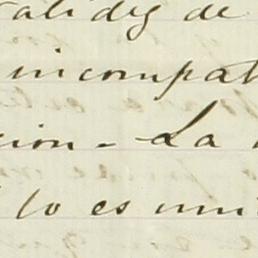 talidez de
incompat
cion - La
lo es uni